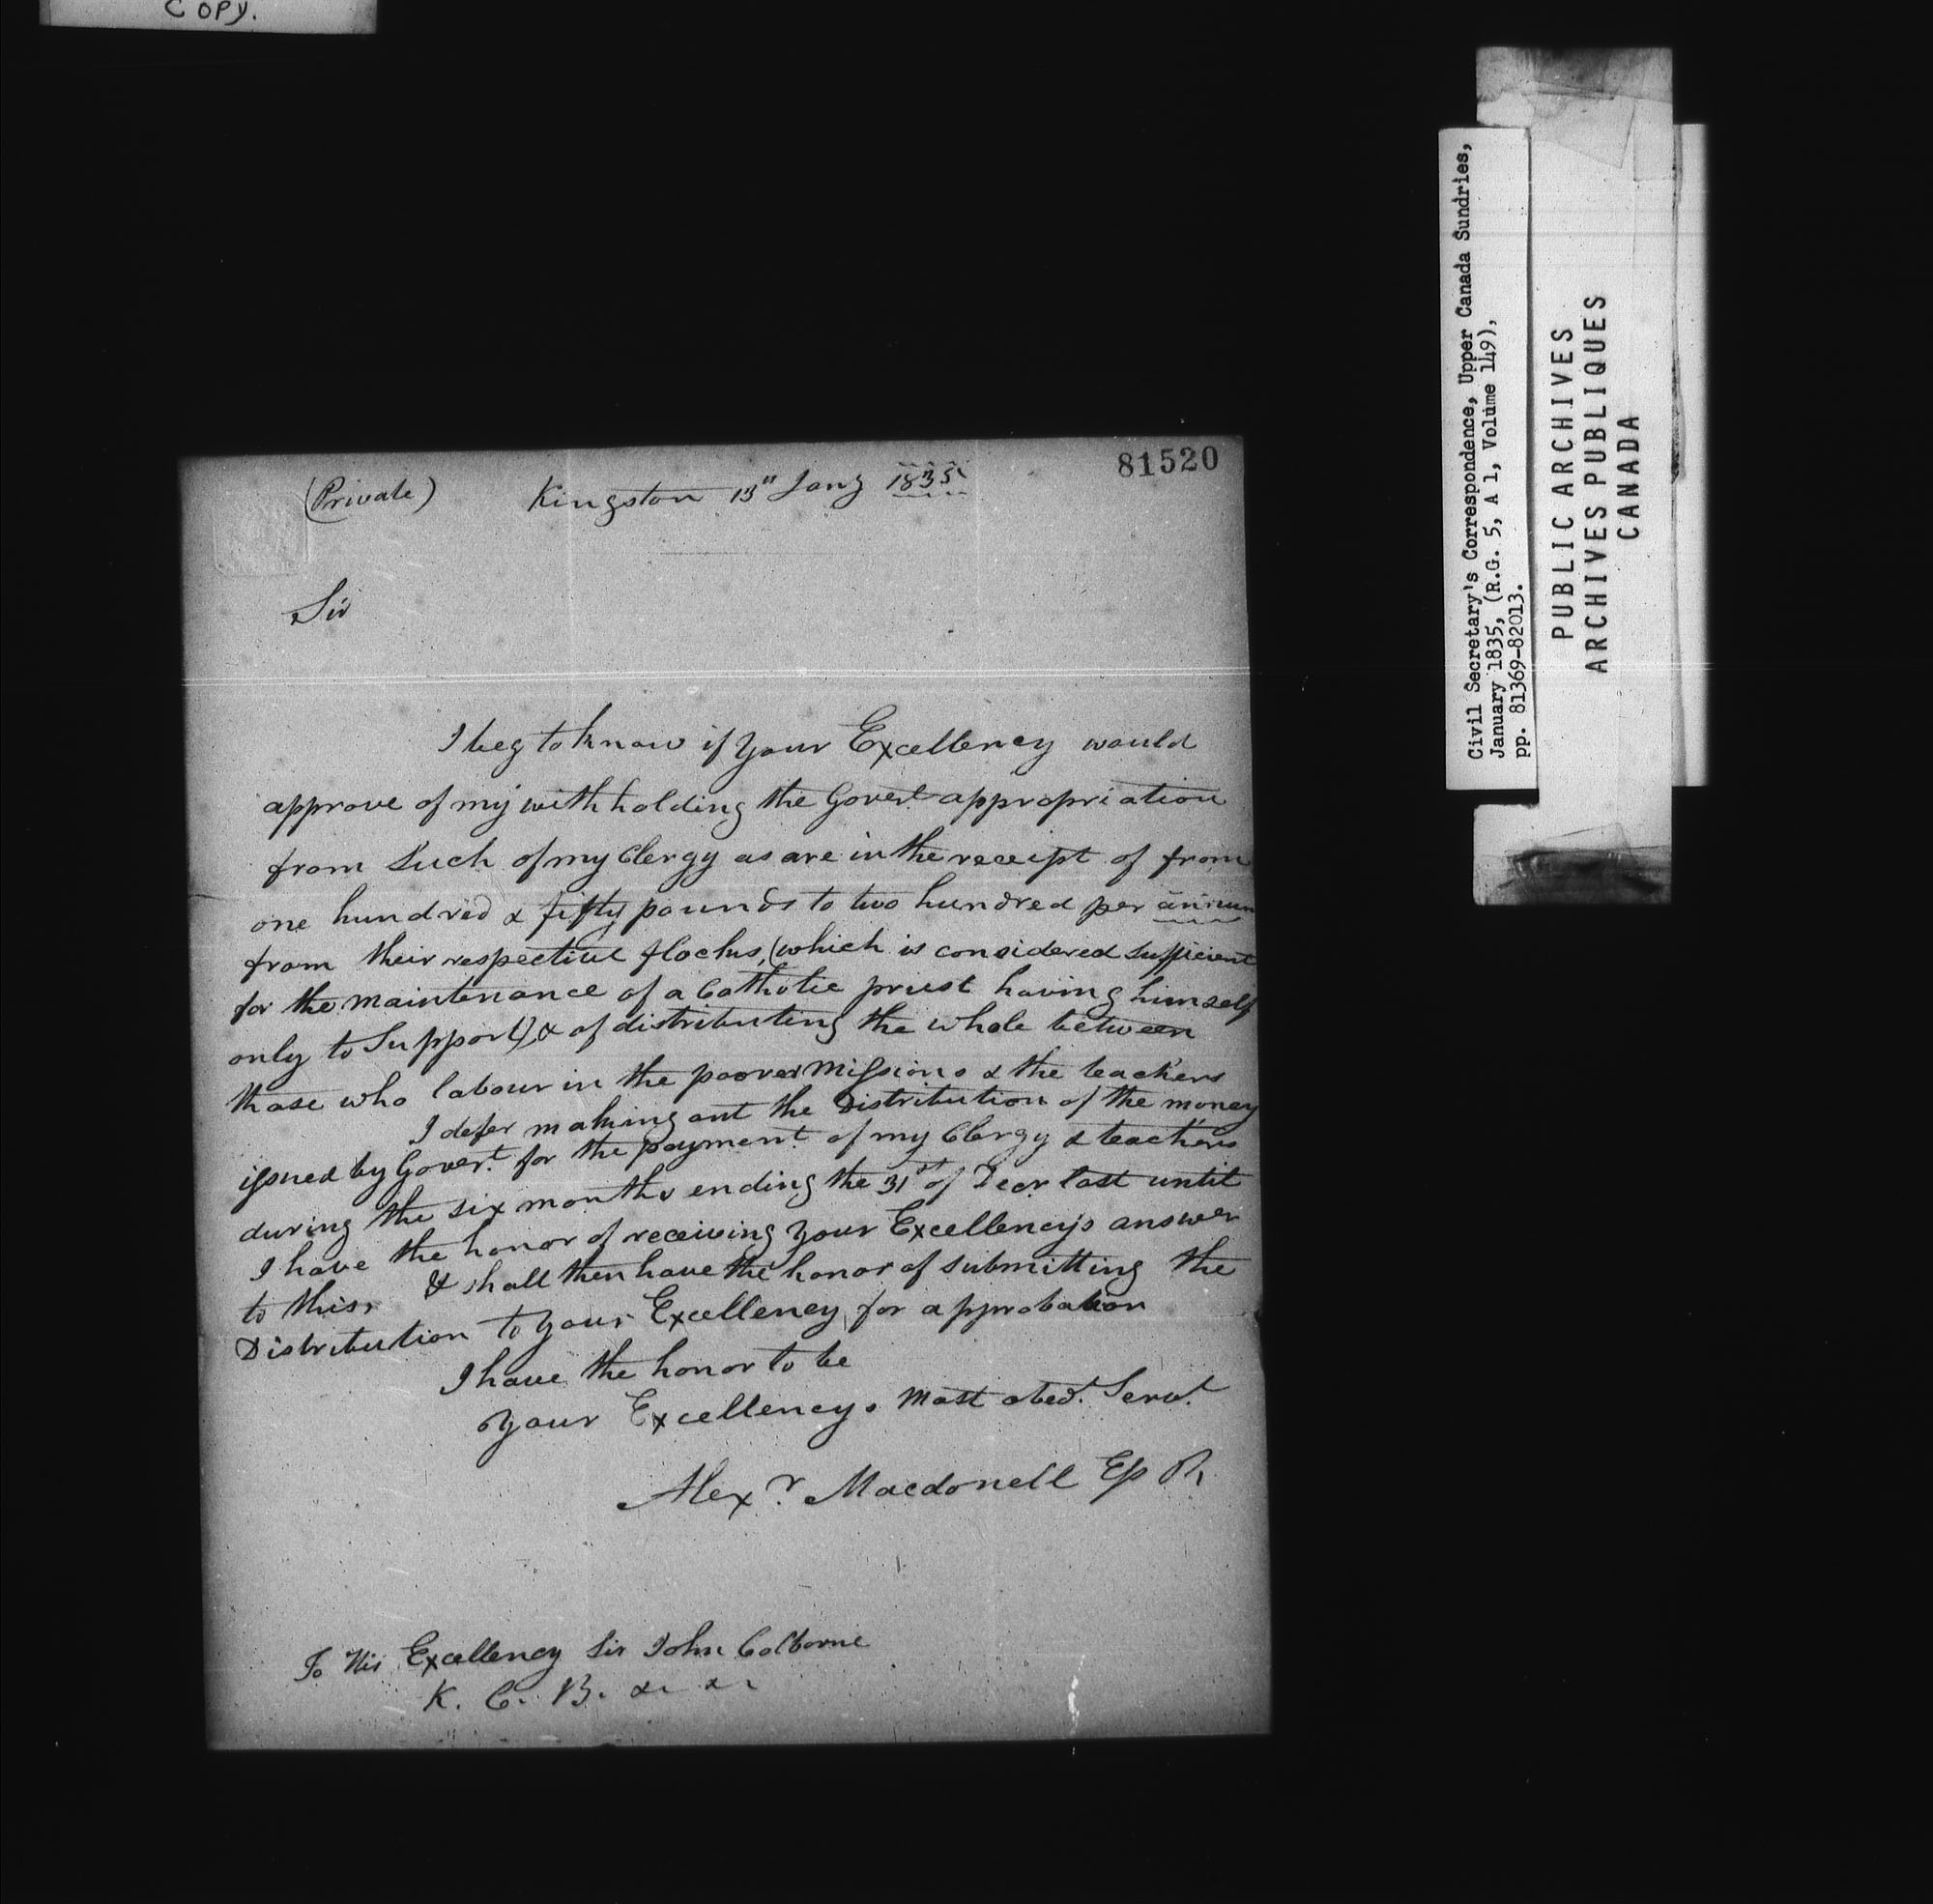 COPY.
81520
(Private) Kingston 13th Jany 1835
Sir
I beg to know if your Excellency would
approve of my withholding the Govert appropriation
from Such of my Clergy as are in the receipt of from
one hundred & fifty pounds to two hundred per annum
from their respective flocks, (which is considered sufficient
for the maintenance of a Catholic priest having himself
only to Support), & of distributing the whole between
those who labour in the poorer Missions & the teachers
I defer making out the Distribution of the money
issued by Govert. for the payment of my Clergy & teachers
during the six months ending the 31st of Decr last until
I have the honor of receiving your Excellency's answer
to this, & shall then have the honor of submitting the
Distribution to your Excellency for approbation
I have the honor to be
your Excellencys most obedt. Servt.
Alexr. Macdonell Ep R
To His Excellency Sir John Colborne
K. C. B. &. &.
Civil Secretary's Correspondence, Upper Canada Sundries,
January 1835, (R.G. 5, A 1, Volume 149),
pp. 81369-82013.
PUBLIC ARCHIVES
ARCHIVES PUBLIQUES
CANADA